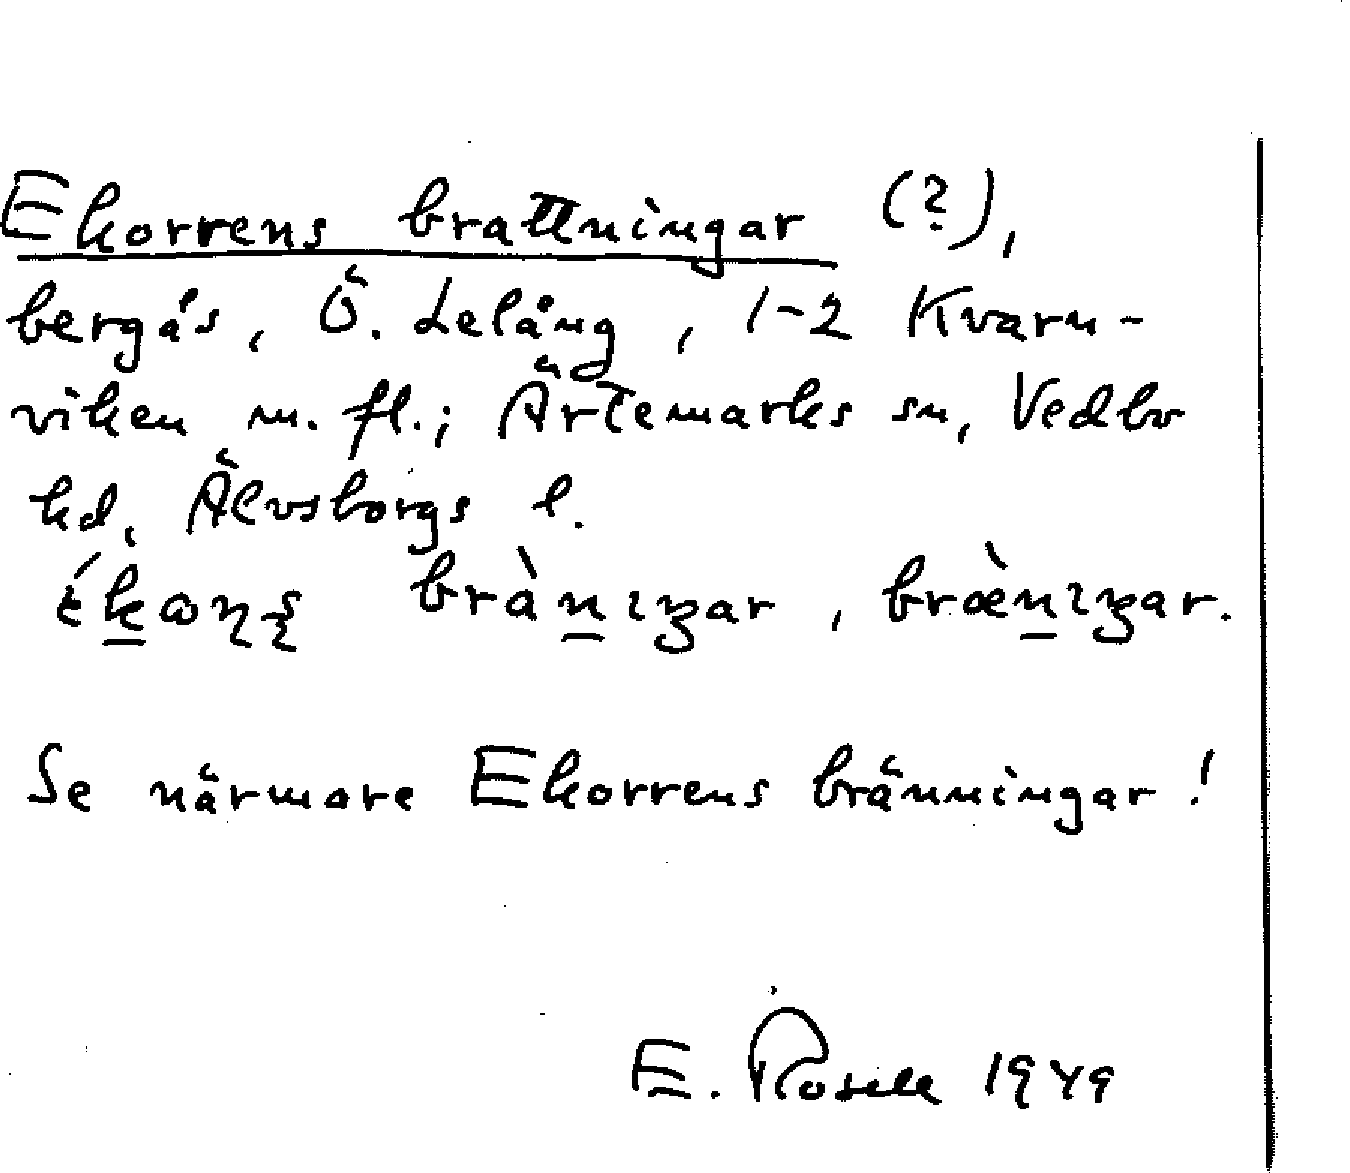 Ekorrens brattningar (?),
bergås, Ö. Lelång, 1-2 Kvarn-
viken m. fl.; Ärtemarks sn, Vedbo
hd, Älvsborgs l.
bràn̲ıŋar, bræ̀n̲ıŋar.
Se närmare Ekorrens bränningar!
E. Rosell 1949